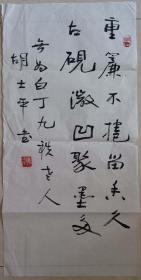 重簾不捲留香久
古硯微凹聚墨多
安為白丁九秩老人
胡士平書